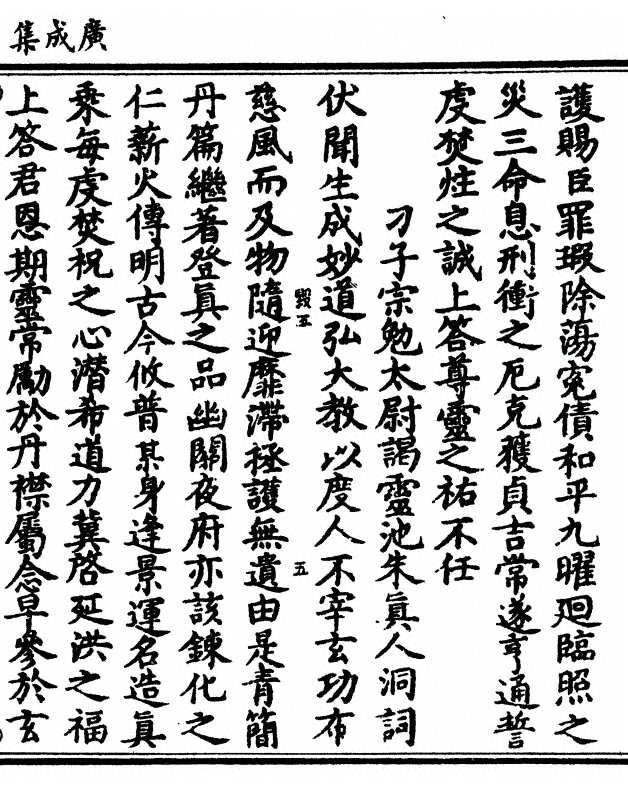 廣成集
護賜臣罪瑕除蕩寃債和平九曜廻臨照之
災三命息刑衝之厄克獲貞吉常遂亨通誓
虔焚炷之誠上答尊靈之祐不任
刁子宗勉太尉謁靈池朱真人洞詞
伏聞生成妙道弘大教以度人不宰玄功布
毀五
五
慈風而及物隨迎靡滯拯護無遺由是青簡
丹篇繼著登真之品幽關夜府亦該鍊化之
仁薪火傳明古今攸普某身逢景運名造真
乘每虔焚祝之心潛希道力冀啓延洪之福
上答君恩期靈常勵於丹襟屬念早參於玄